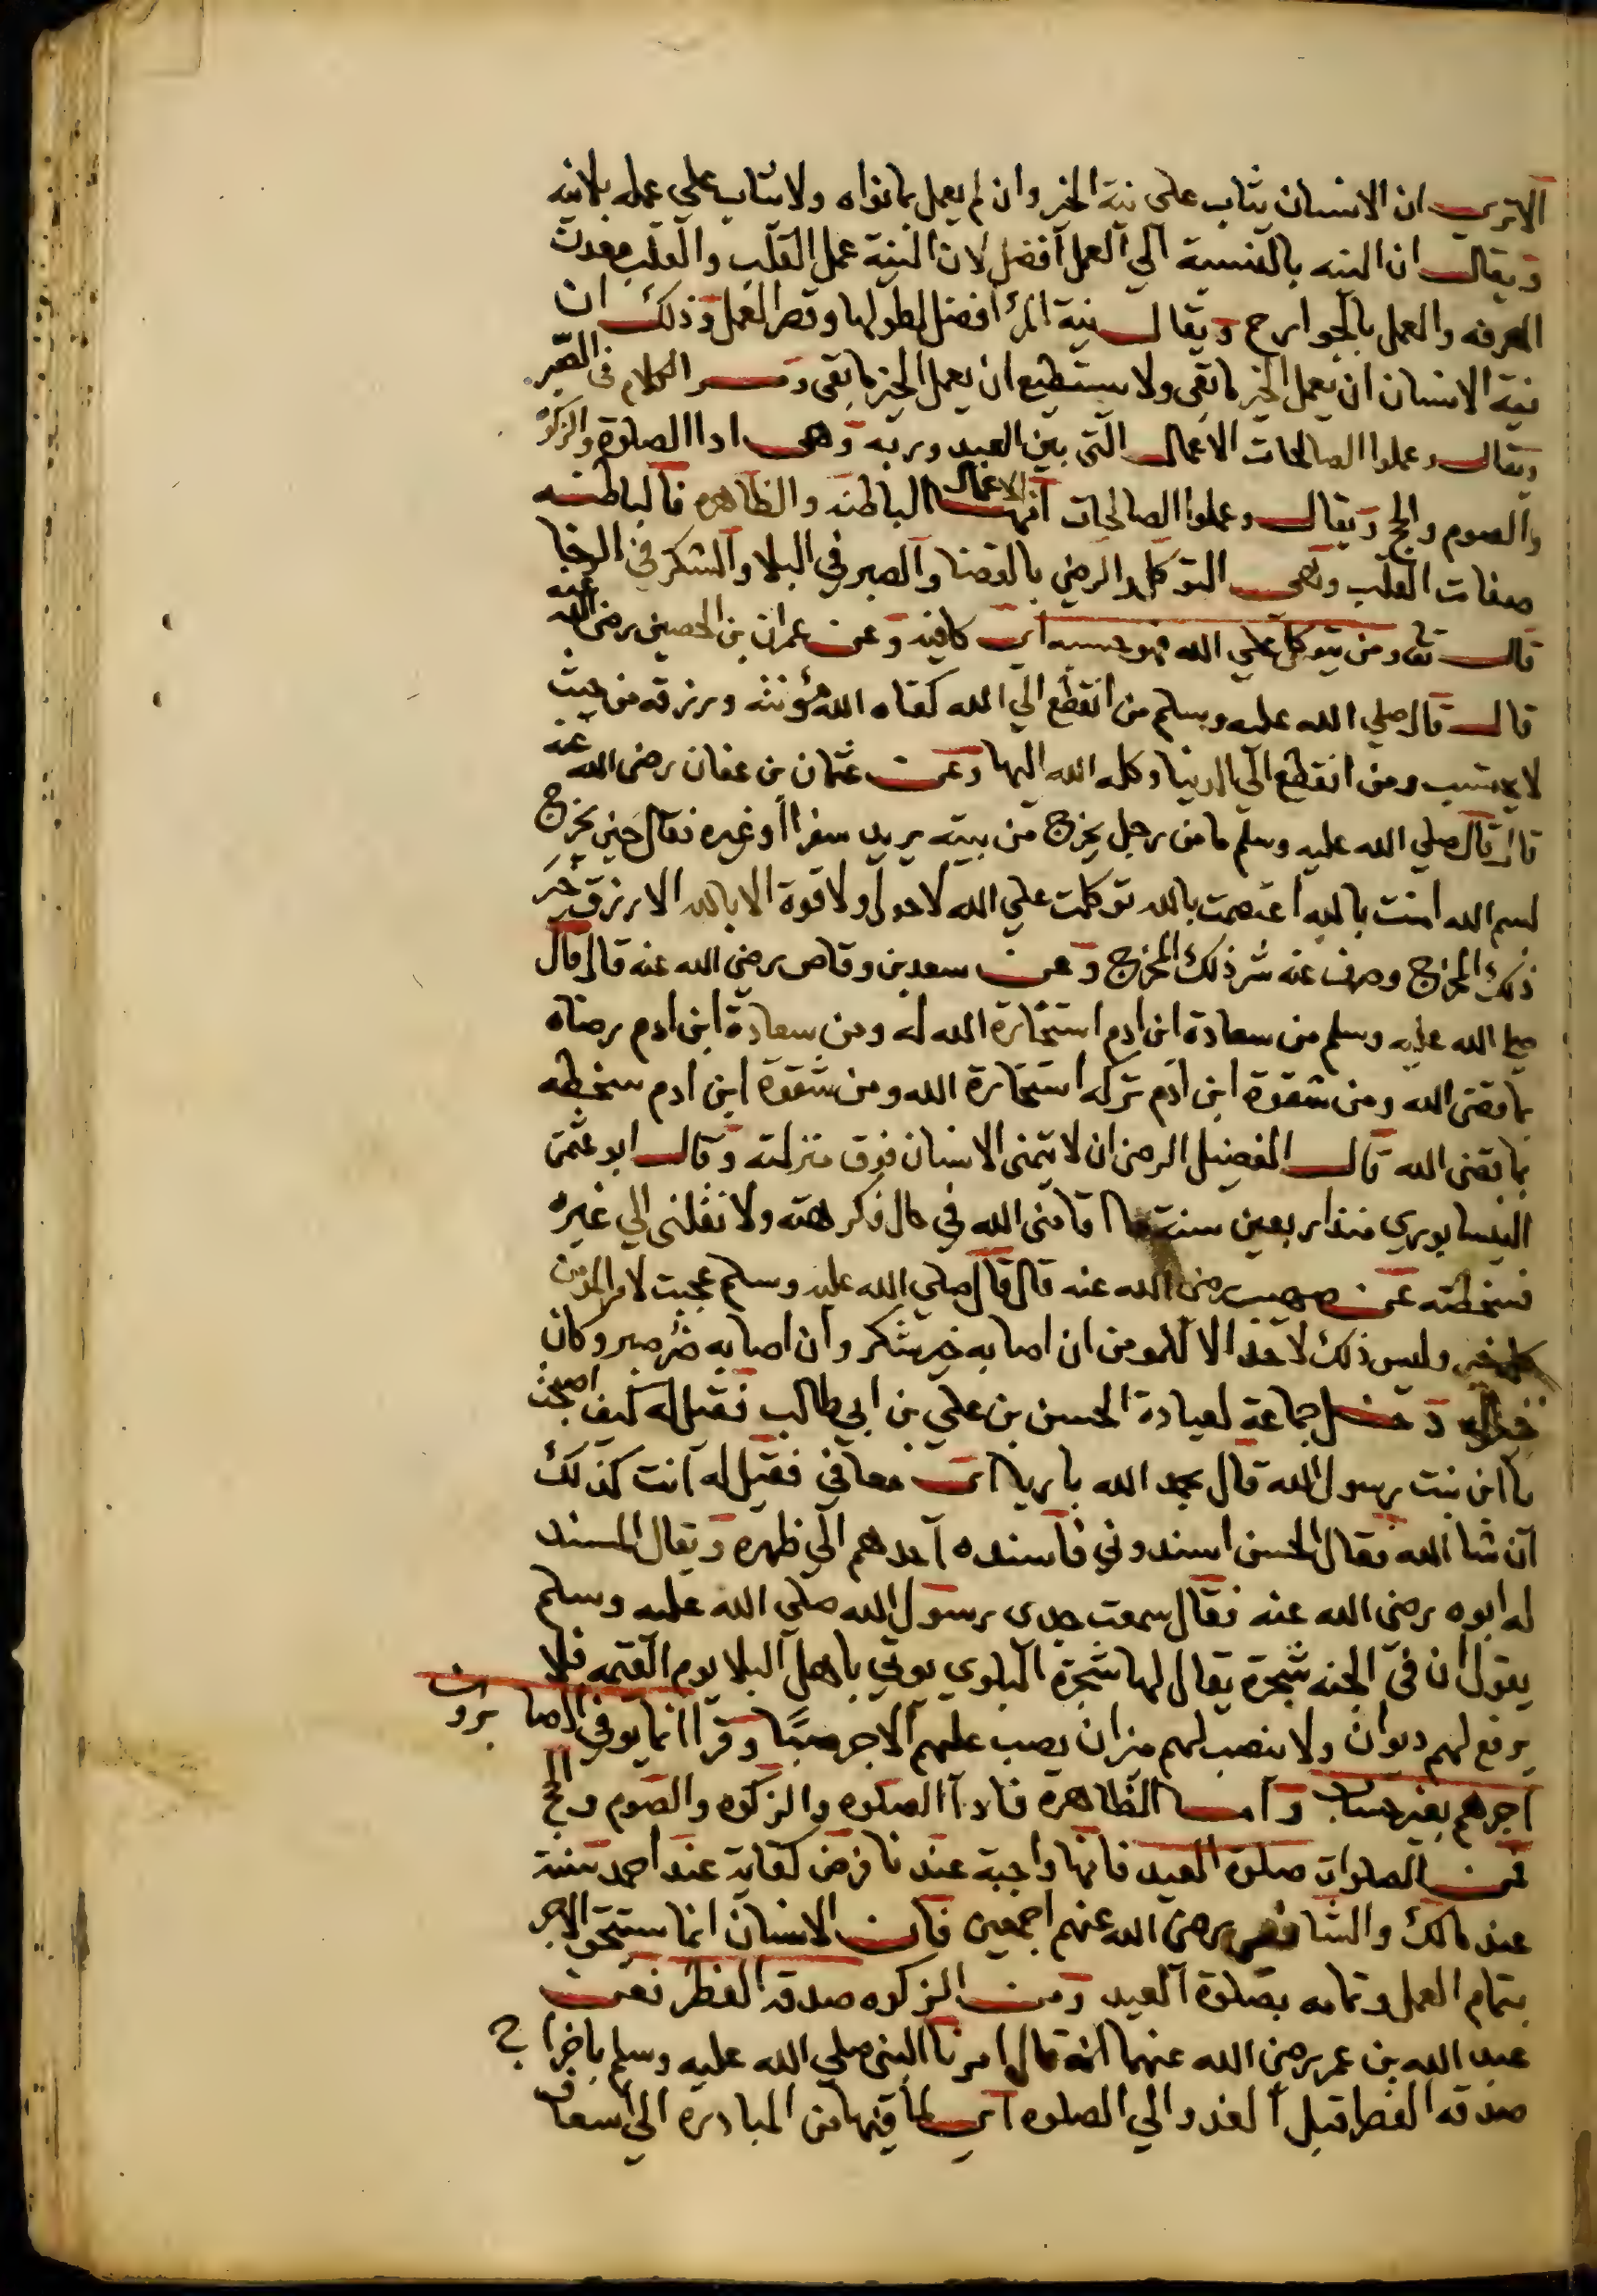 الا تري ان الانسان يثاب على نية الخير وان لم يعمل بما نواه ولا يثاب على عمله بلا نيه
ويقال ان النيه بالنسبة الي العمل افضل لان النية عمل القلب والقلب معدن
المعرفه والعمل بالجوارح ويقال نية المرء افضل لطولها وقصر العمل وذلك ان
نية الانسان ان يعمل الخير ما بقى ولا يستطيع ان يعمل الخير ما بقى ومر الكلام فى الصبر
ويقال وعملوا الصالحات الاعمال التى بين العبد وربه وهى ادا الصلوة والزكوة
والصوم والحج ويقال وعملوا الصالحات انها الاعمال الباطنه والظاهره فالباطنه
صفات القلب وهى التوكل والرضي بالقضا والصبر في البلا والشكر في الرخا
قال تعا ومن يتوكل علي الله فهو حسبه اي كافيه وعن عمران بن الحصين رضى الله عنه
قال قال صلي الله عليه وسلم من انقطع الي الله كفاه الله مؤنته ورزقه من حيث
لا يحتسب ومن انقطع الي الدنيا وكله الله اليها وعن عثمان بن عفان رضى الله عنه
قال قال صلي الله عليه وسلم ما من رجل يخرج من بيته يريد سفرا او غيره فقال حين يخرج
بسم الله امنت بالله اعتصمت بالله توكلت علي الله لا حول ولا قوة الا بالله الا رزق خير
ذلك المخرج وصرف عنه شر ذلك المخرج وعن سعد بن وقاص رضي الله عنه قال قال
صلي الله عليه وسلم من سعادة ابن ادم استخارة الله له ومن سعادة ابن ادم رضاه
بما قضى الله ومن شقوة ابن ادم تركه استخارة الله ومن شقوة ابن ادم سخطه
بما قضى الله قال الفضيل الرضى ان لا يتمنى الانسان فوق منزلته وقال ابو عثمن
النيسابوري منذ اربعين سنة ما اقامنى الله في حال فكرهته ولا نقلنى الي غيره
فسخطته عن صهيب رضى الله عنه قال قال صلي الله عليه وسلم عجبت لامر المومن
كله خير وليس ذلك لاحد الا للمومن ان اصابه خير شكر وان اصابه ضر صبر وكان
خيرا له دخل جماعة لعيادة الحسن بن علي بن ابي طالب فقيل له كيف اصبحت
يا ابن بنت رسول الله قال بحمد الله باريا اي معافي فقيل له انت كذلك
ان شا الله فقال الحسن اسندوني فاسنده احدهم الي ظهره ويقال المسند
له ابوه رضى الله عنه فقال سمعت جدى رسول الله صلي الله عليه وسلم
يقول ان في الجنه شجرة يقال لها شجرة البلوي يوتي باهل البلا يوم القيمه فلا
يرفع لهم ديوان ولا ينصب لهم ميزان يصب عليهم الاجر صبًا وقرا انما يوفي الصابرون
اجرهم بغير حساب واما الظاهرة فادا الصلوه والزكوه والصوم والحج
فمن الصلوات صلوة العيد فانها واجبة عندنا فرض كفاية عند احمد سنة
عند مالك والشافعي رضى الله عنهم اجمعين فان الانسان انما يستحق الاجر
بتمام العمل وتمامه بصلوة العيد ومن الزكوه صدقه الفطر فعن
عبد الله بن عمر رضى الله عنهما انه قال امرنا النبي صلي الله عليه وسلم باخراج
صدقه الفطر قبل الغدو الي الصلوه اي لما فيها من المبادره الي اسعاف